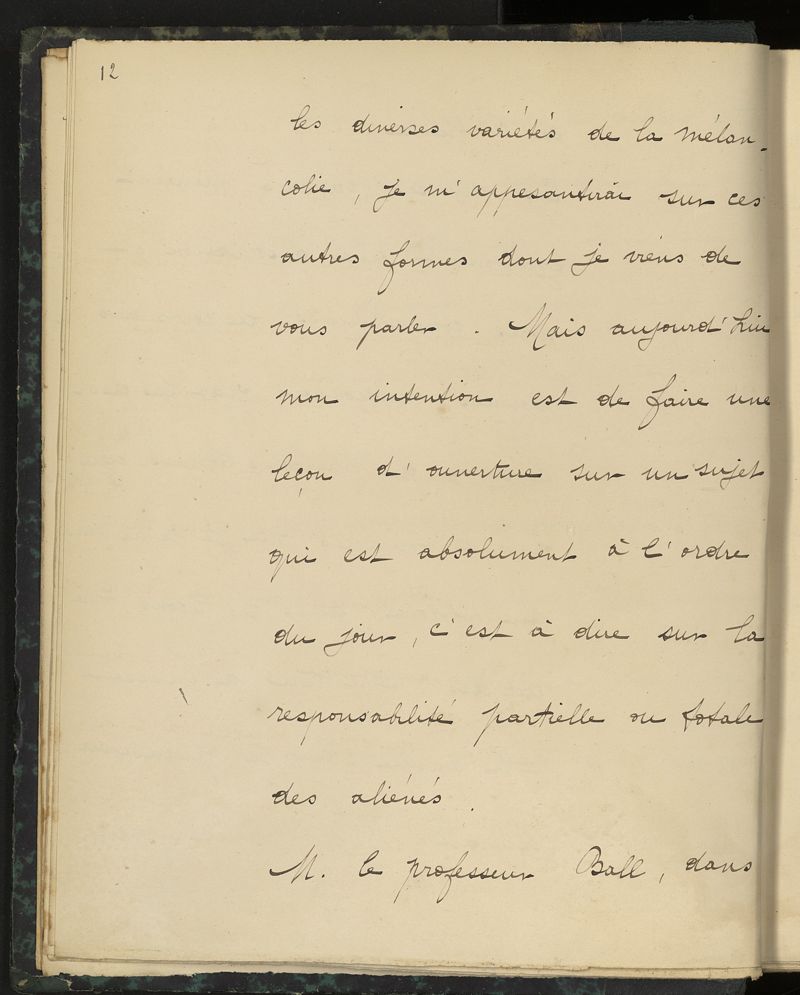 12
les diverses variétés de la mélan-
colie, je m'appesantirai sur ces
autres formes dont je viens de
vous parler. Mais aujourd'hui
mon intention est de faire une
leçon d'ouverture sur un sujet
qui est absolument à l'ordre
du jour, c'est à dire sur la
responsabilité partielle ou totale
des aliénés.
M. le professeur Ball, dans